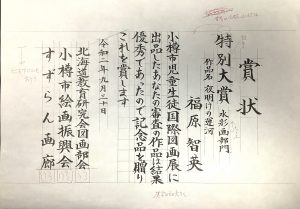 賞状
特別大賞 水彩画部門
作品名 夜明けの運河
福原智英
小樽市児童生徒国際図画展に
出品したあなたの審査の作品は結果
優秀であったので記念品を贈り
これを賞します
令和二年九月二十日
北海道教育研究会図画部
小樽市絵画振興会
すずらん画廊